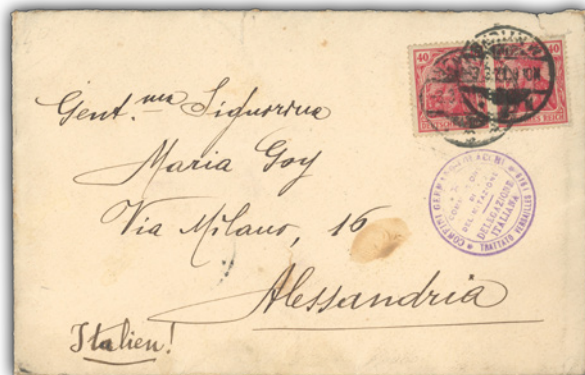 40 40
DEUTSCHES REICH
Gent.ma Signorina
Maria Goy
Via Milano, 16
Alessandria
Italien!
DELEGAZIONE
ITALIANA
TRATTATO VERSAILLES 1919